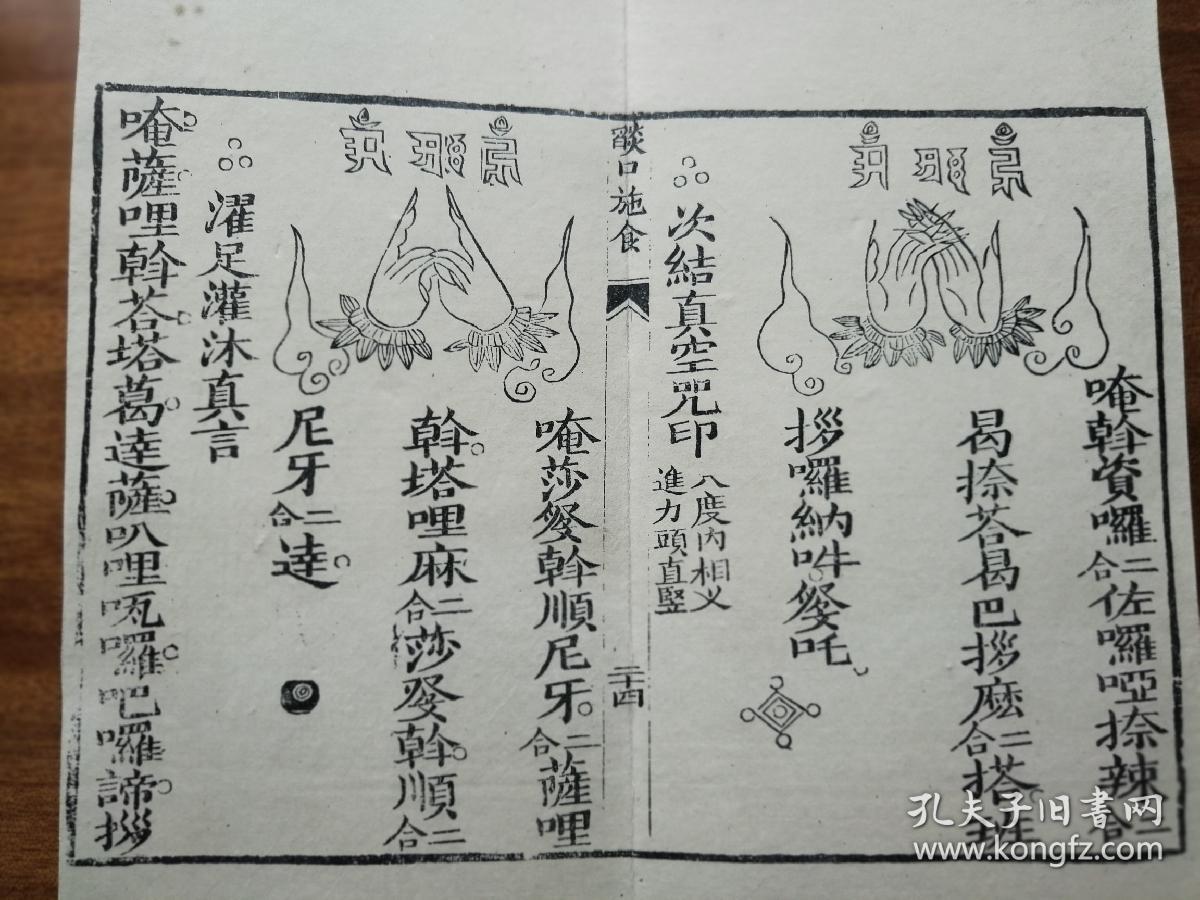 唵斡資囉二合佐囉啞捺辣二合
曷捺荅曷巴拶麽二合搭班
拶囉納吽癹吒
次結真空咒印
八度内相叉
進力頭直豎
燄口施食
二十四
唵莎癹斡順尼牙二合薩哩
斡塔哩麻二合莎癹斡順二合
尼牙二合達
濯足灌沐真言
唵薩哩斡荅塔葛達薩叭哩㖸囉吧囉諦拶
孔夫子旧書网
www.kongfz.com